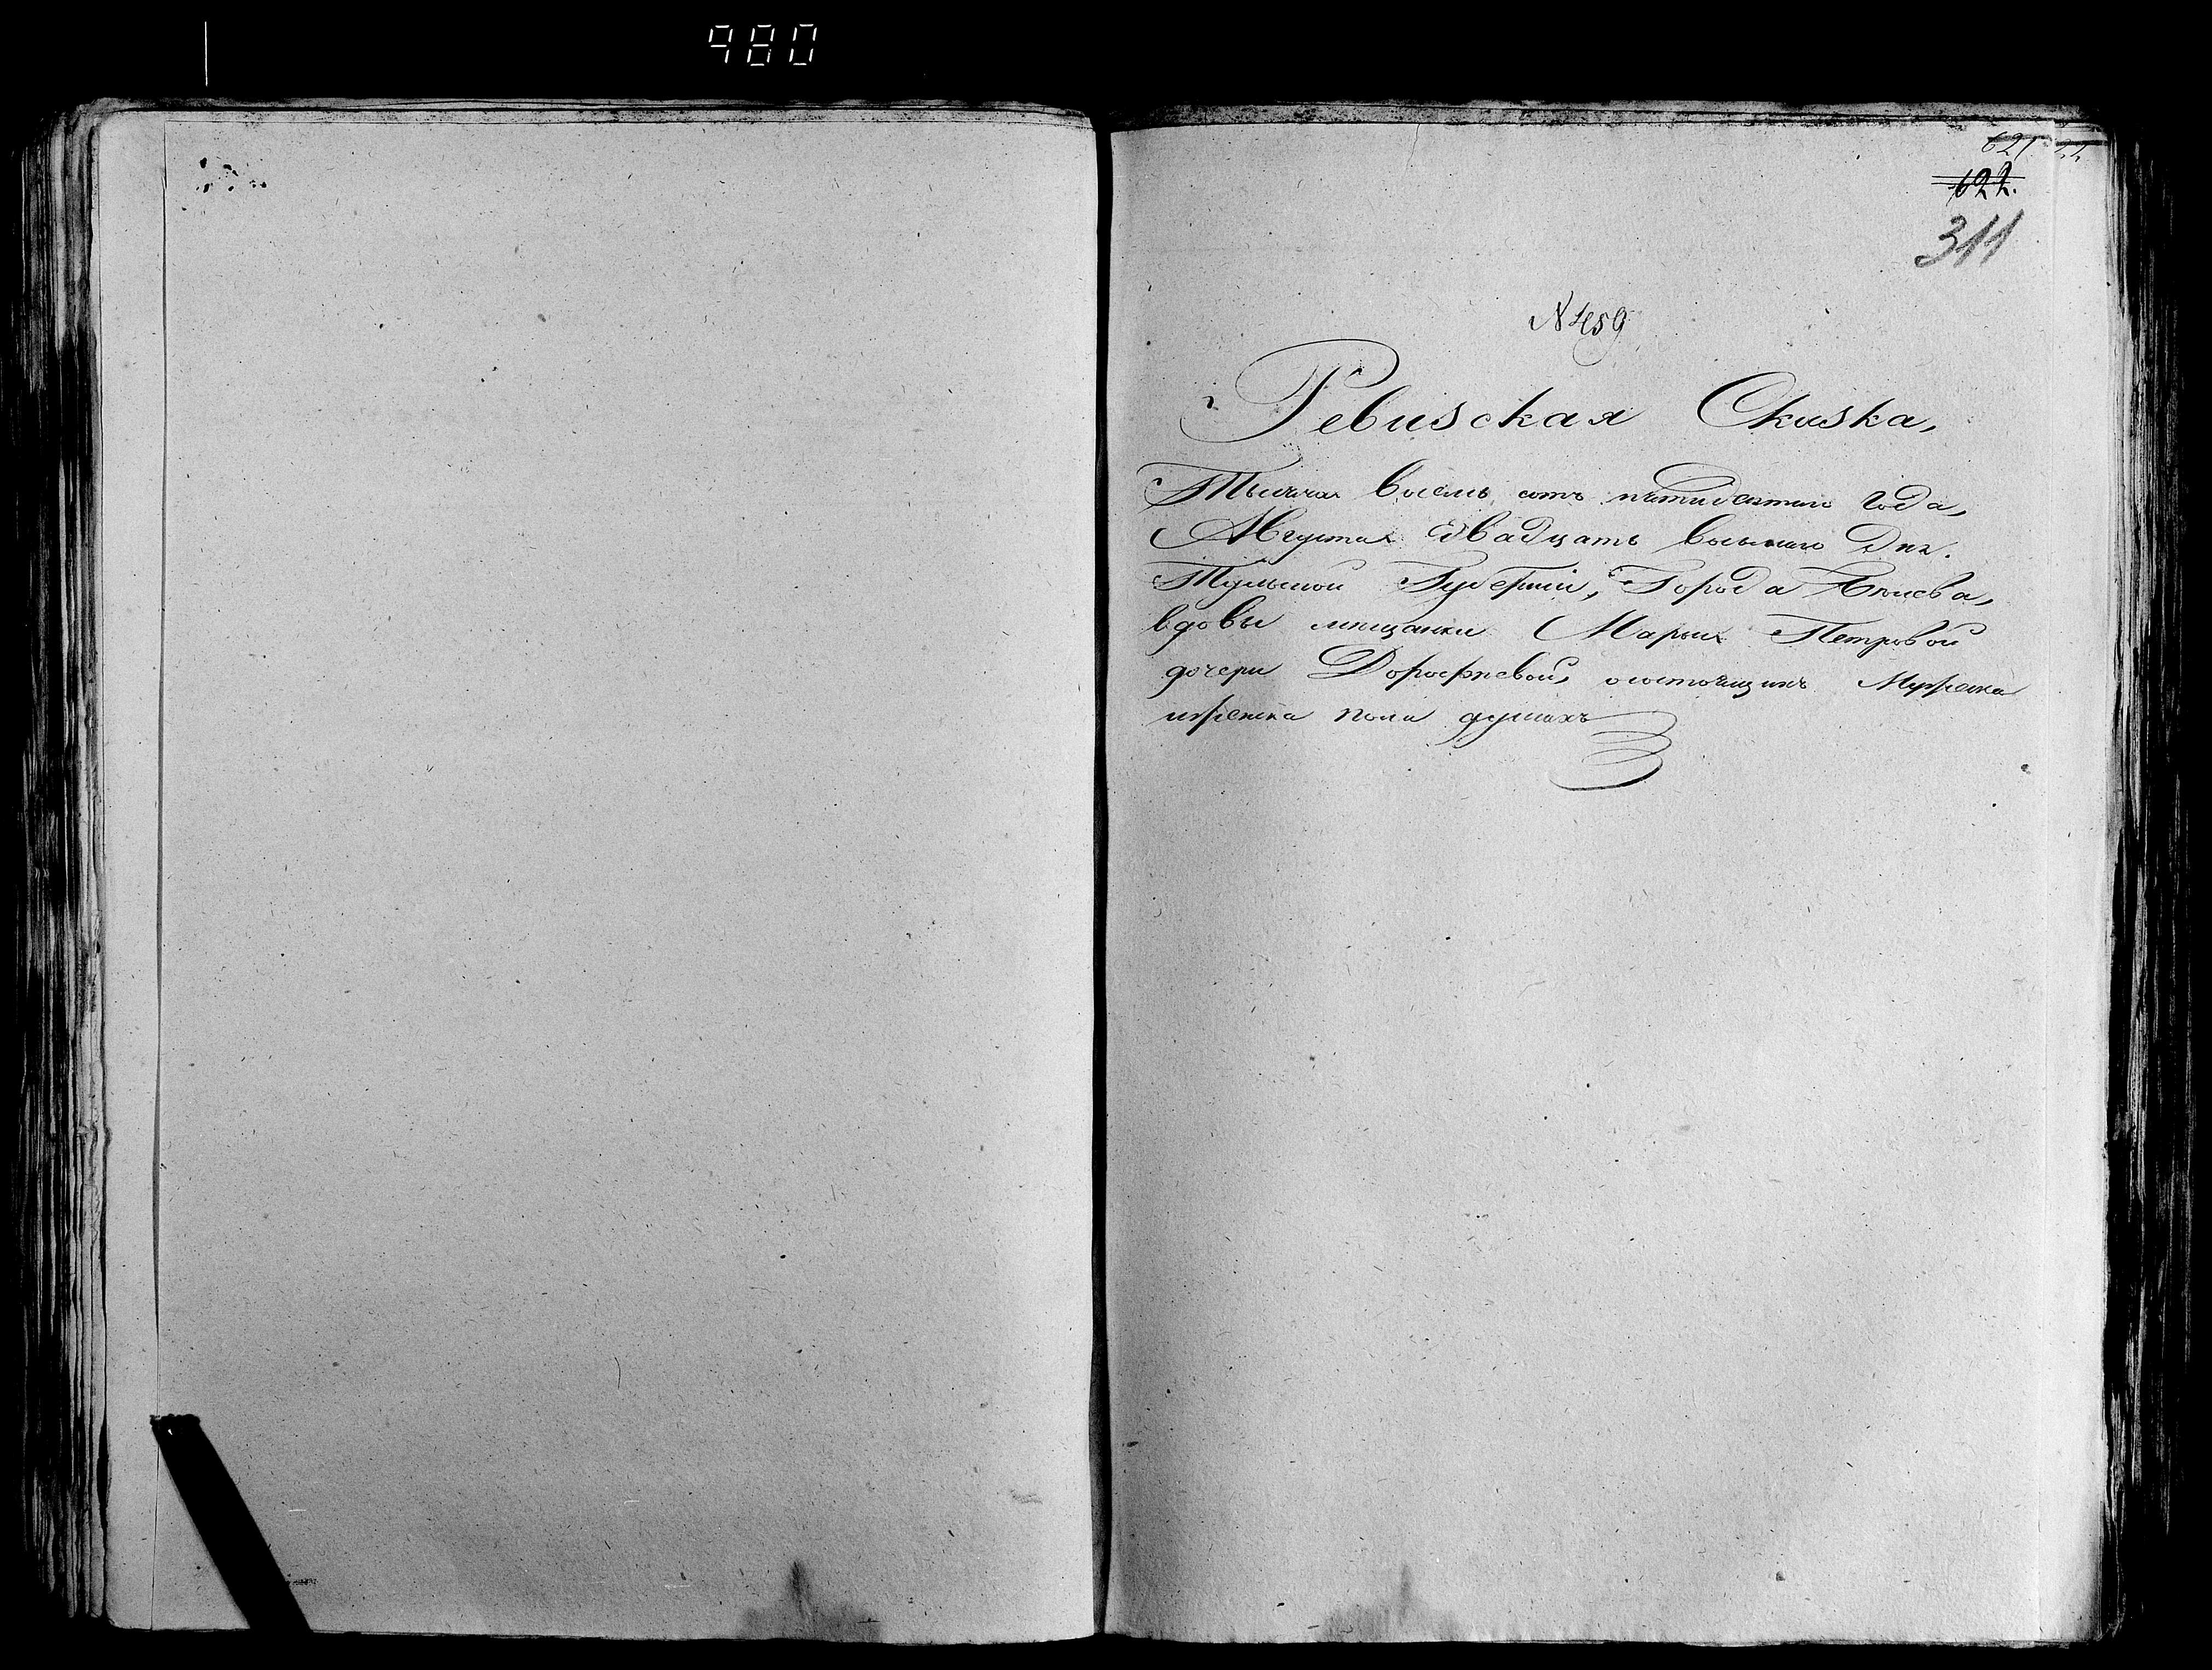 980
621
622.
311
N 459
Ревизская Сказка,
Тысяча восемь сотъ пятидесятаго года,
Августа двадцать восьмаго дня.
Тульской Губерніи, Города Бѣлева,
вдовы мещанки Марьи Петровой
дочери Дорофѣевой, о состоящихъ мужеска
и женска пола душахъ